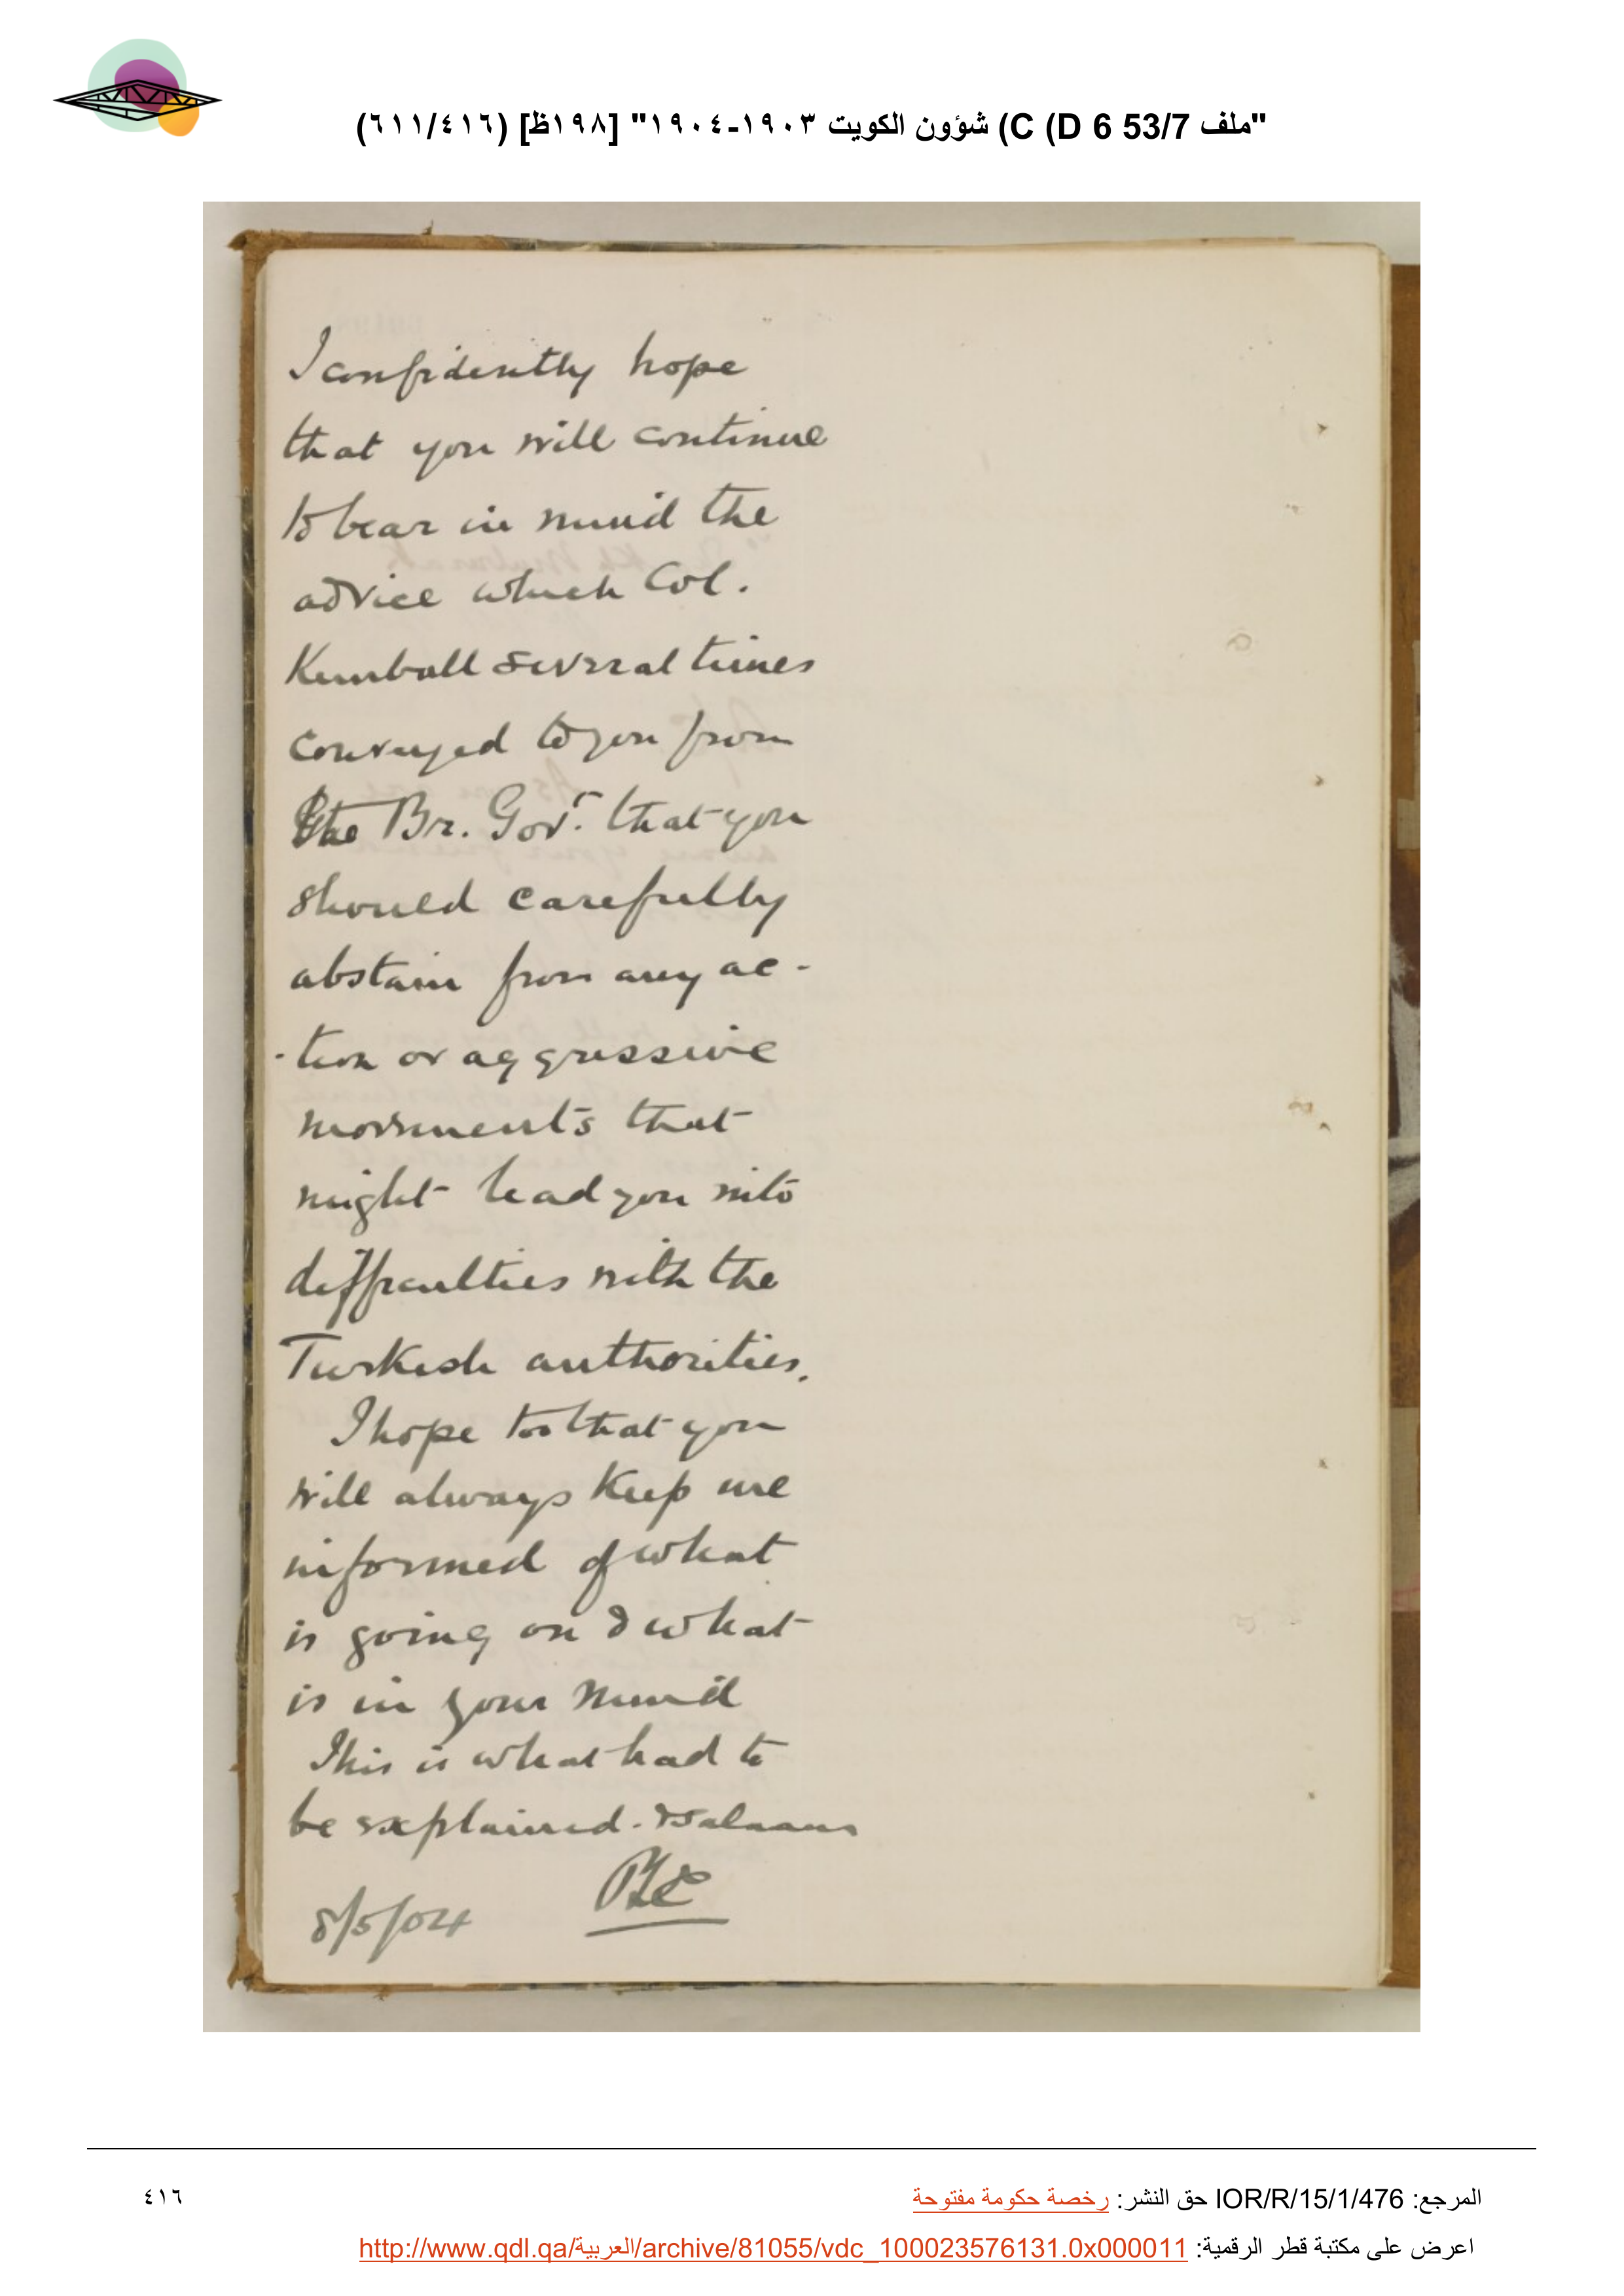 "ملف 53/7 C (D 6) شؤون الكويت ١٩٠٣-١٩٠٤" [١٩٨ظ] (٤١٦/٦١١)
I confidently hope
that you will continue
to bear in mind the
advice which Col.
Kemball several times
conveyed to you from
the Br. Govt. that you
should carefully
abstain from any ac-
-tion or aggressive
movements that
might lead you into
difficulties with the
Turkish authorities.
I hope too that you
will always keep me
informed of what
is going on & what
is in your mind
This is what had to
be explained. & salaams
8/5/04
المرجع: IOR/R/15/1/476 حق النشر: رخصة حكومة مفتوحة
٤١٦
اعرض على مكتبة قطر الرقمية: http://www.qdl.qa/العربية/archive/81055/vdc_100023576131.0x000011